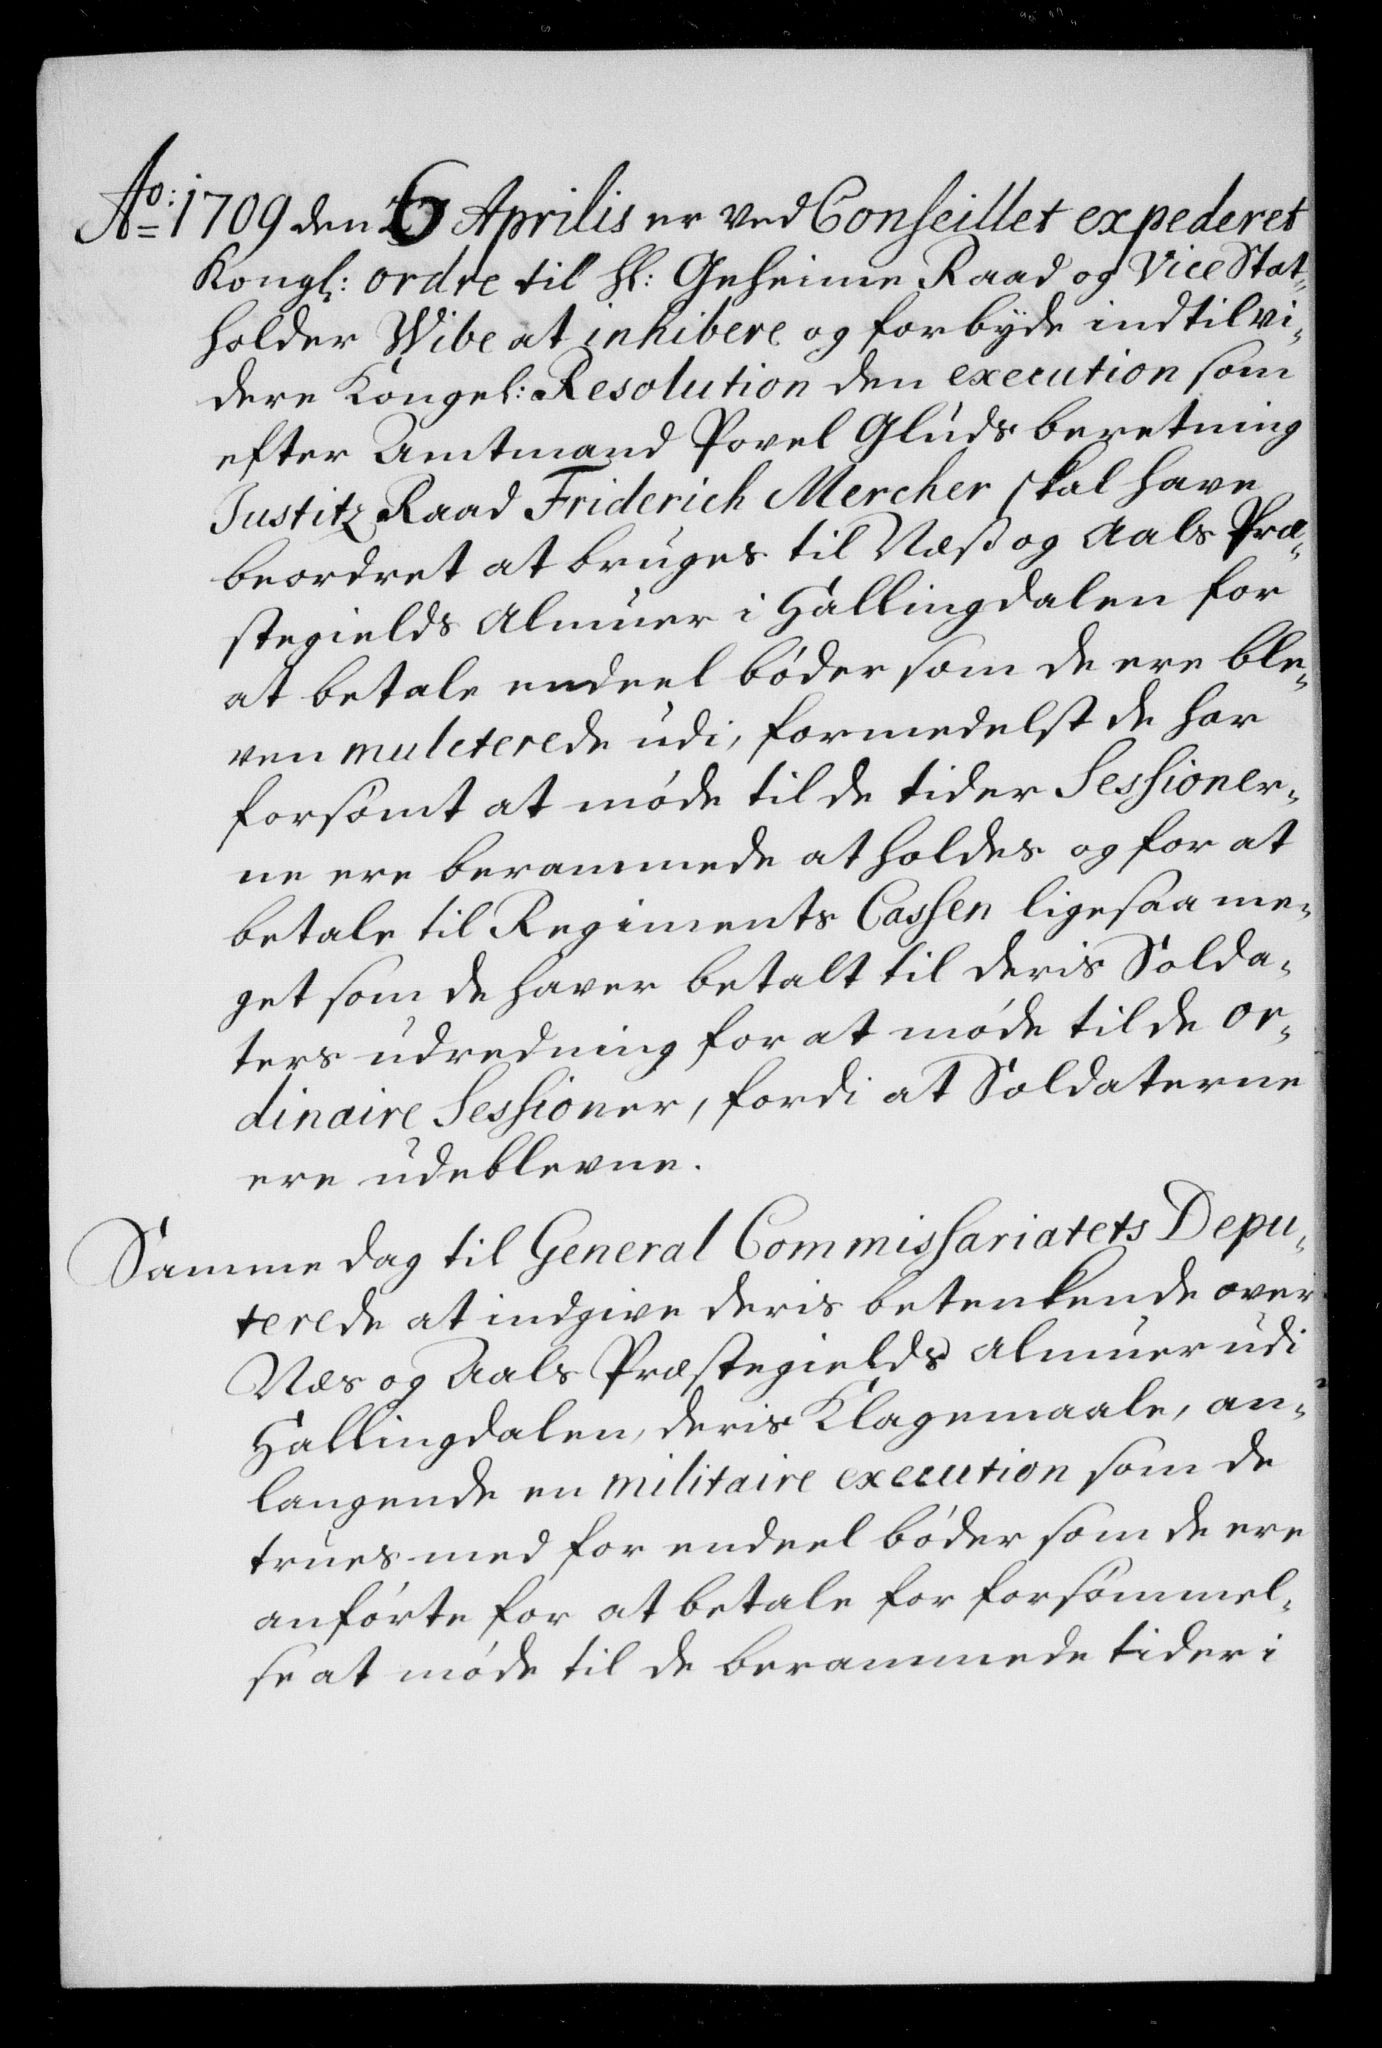 Ao: 1709 den 6 Aprilis er ved Conseillet expederet
Kongl: ordre til H: Geheime Raad og Vice Stat„
holder Wibe at inhibere og forbyde indtil vi„
dere Kongel: Resolution den execution som
efter Amtmand Povel Gluds beretning
Justitz Raad Friderich Mercher skal have
beordret at bruges til Næss og Aals Præ„
stegields Almuer i Hallingdalen for
at betale endeel bøder som de ere ble„
ven mulcterede udi, formedelst de har
forsømt at møde til de tider Sessioner„
ne ere berammede at holdes og for at
betale til Regiments Cassen ligesaa me„
get som de haver betalt til deris Solda„
ters udredning for at møde til de or„
dinaire Sessioner, fordi at Soldaterne
ere udeblevne.
Samme dag til General Commissariatets Depu„
terede at indgive deris betenkende over
Næs og Aals Præstegields Almuer udi
Hallingdalen, deris Klagemaale, an„
langende en militaire execution som de
trues med for endeel bøder som de ere
anførte for at betale for forsømmel„
se at møde til de berammede tider i